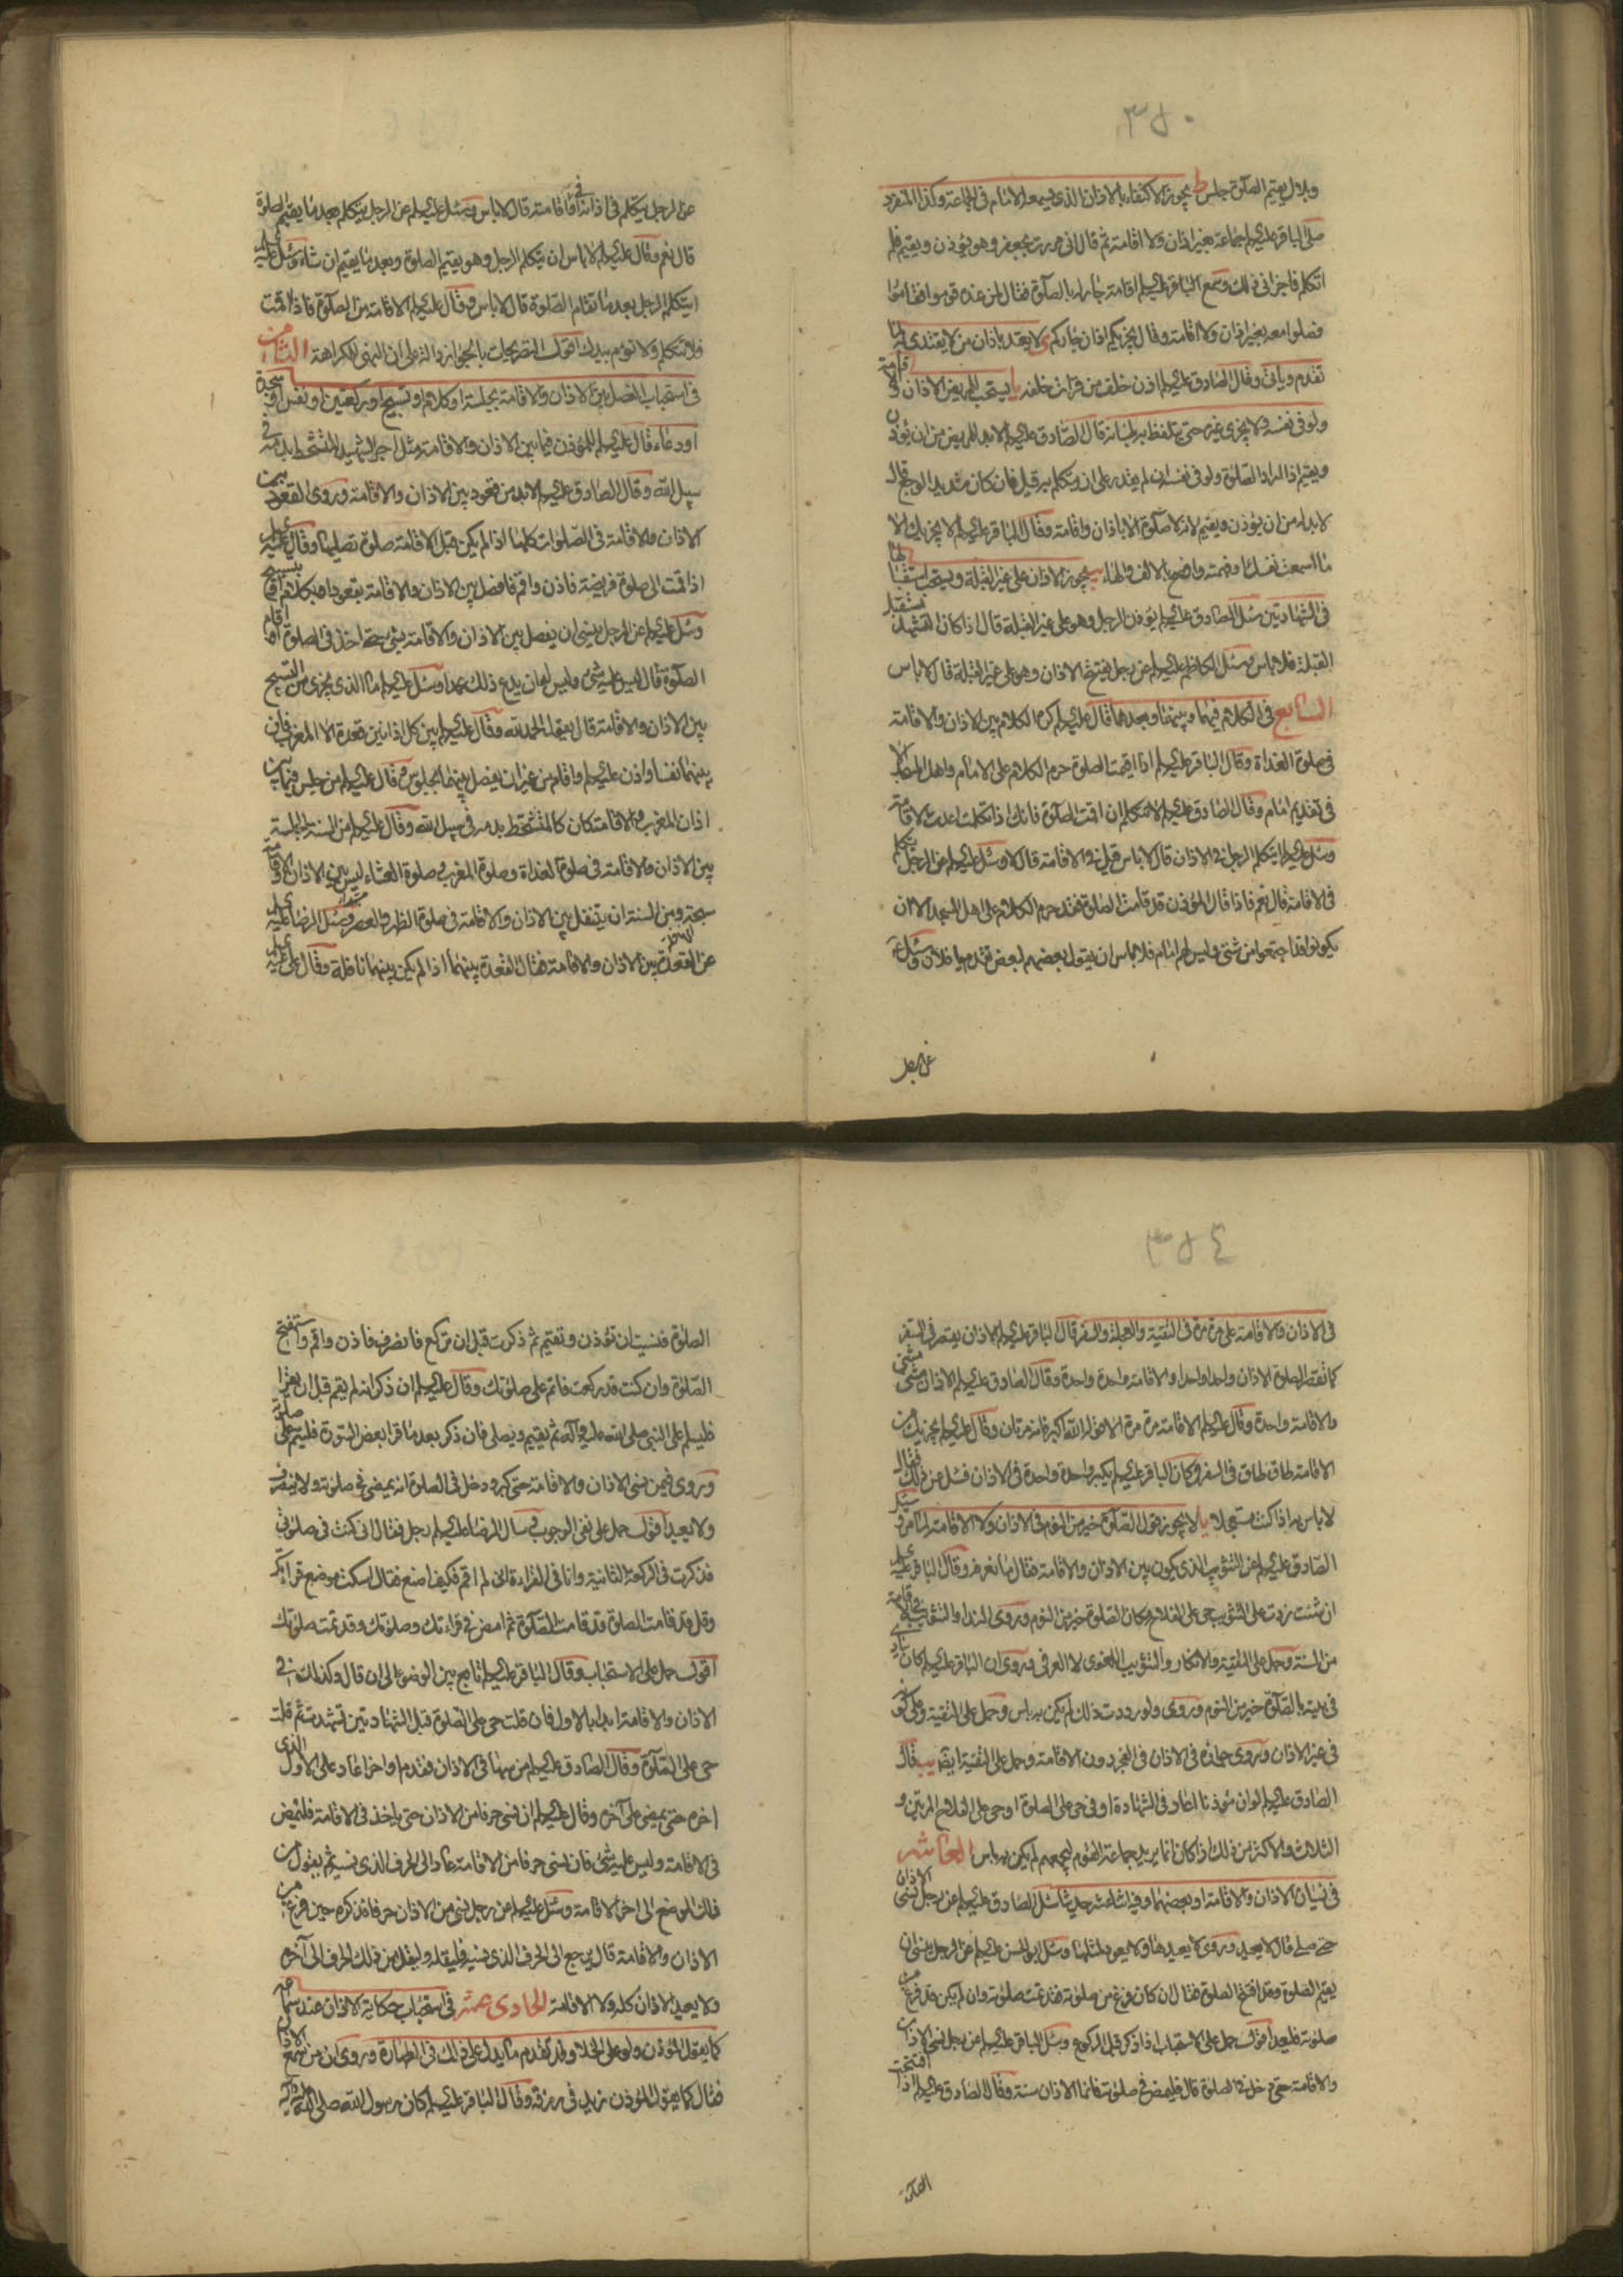 ٣٥٠
وبلال يقيم الصلوة جلس ط يجوز الاكتفاء بالاذان الذى يسمعه الامام فى الجماعة وكذا المنفرد
صلى الباقر عليه السلم جماعة بغير اذان ولا اقامة ثم قال انى مررت بجعفر وهو يؤذن ويقيم فلم
اتكلم فاجزانى ذلك وسمع الباقر عليه السلم اقامة جار له بالصلوة فقال لمن عنده قوموا فقاموا
فصلوا معه بغير اذان ولا اقامة وقال يجزيكم اذان جاركم ى لا يعتد باذان من لا يقتدى به لما
تقدم وياتى وقال الصادق عليه السلم اذن خلف من قرات خلفه يا يستحب للمريض الاذان والاقامة
ولو فى نفسه ولا يجزى غيره حتى تلفظ به لسانه قال الصادق عليه السلم لا بد للمريض من ان يؤذن
ويقيم اذا اراد الصلوة ولو فى نفسه ان لم يقدر على ان يتكلم به قيل فان كان شديد الوجع قال
لا بد له من ان يؤذن ويقيم لانه لا صلوة الا باذان واقامة وقال الباقر عليه السلم لا يجزيك الا
ما اسمعت نفسك او فهمته وافصح بالالف والهاء يب يجوز الاذان على غير القبلة ويستحب استقبالها
فى الشهادتين سئل الصادق عليه السلم يؤذن الرجل وهو على غير القبلة قال اذا كان التشهد مستقبل
القبلة فلا باس وسئل الكاظم عليه السلم عن رجل يفتتح الاذان وهو على غير القبلة قال لا باس
السابع فى الكلام فيهما وبينهما وبعدهما قال عليه السلم كره الكلام بين الاذان والاقامة
فى صلوة الغداة وقال الباقر عليه السلم اذا اقيمت الصلوة حرم الكلام على الامام واهل المسجد الا
فى تقديم امام وقال الصادق عليه السلم لا تتكلم اذا اقمت الصلوة فانك اذا تكلمت اعدت الاقامة
وسئل عليه السلم ايتكلم الرجل فى الاذان قال لا باس قيل فى الاقامة قال لا وسئل عليه السلم عن الرجل يتكلم
فى الاقامة قال نعم فاذا قال المؤذن قد قامت الصلوة فقد حرم الكلام على اهل المسجد الا ان
يكونوا قد اجتمعوا من شتى وليس لهم امام فلا باس ان يقول بعضهم لبعض تقدم يا فلان وسئل ع
عن الرجل
عن الرجل يتكلم فى اذانه او فى اقامته قال لا باس وسئل عليه السلم عن الرجل يتكلم بعد ما يقيم الصلوة
قال نعم وقال عليه السلم لا باس ان يتكلم الرجل وهو يقيم الصلوة وبعد ما يقيم ان شاء وسئل عليه السلم
ايتكلم الرجل بعد ما تقام الصلوة قال لا باس وقال عليه السلم الاقامة من الصلوة فاذا اقمت
فلا تتكلم ولا توم بيدك اقول التصريحات بالجواز دالة على ان النهى للكراهة الثامن
فى استحباب الفصل بين الاذان والاقامة بجلسة او كلام او تسبيح او ركعتين او نفس او سجدة
او دعاء قال عليه السلم للمؤذن فيما بين الاذان والاقامة مثل اجر الشهيد المتشحط بدمه فى
سبيل الله وقال الصادق عليه السلم لا بد من قعود بين الاذان والاقامة وروى القعود بين
الاذان والاقامة فى الصلوات كلها اذا لم يكن قبل الاقامة صلوة تصليها وقال عليه السلم
اذا قمت الى صلوة فريضة فاذن واقم وافصل بين الاذان والاقامة بقعود او بكلام او تسبيح
وسئل عليه السلم عن الرجل ينسى ان يفصل بين الاذان والاقامة بشى حتى اخذ فى الصلوة او اقام
الصلوة قال ليس عليه شئ وليس له ان يدع ذلك عمدا وسئل عليه السلم ما الذى يجزى من التسبيح
بين الاذان والاقامة قال يقول الحمد لله وقال عليه السلم بين كل اذانين قعدة الا المغرب فان
بينهما نفسا واذن عليه السلم واقام من غير ان يفصل بينهما بجلوس وقال عليه السلم من جلس فيما بين
اذان المغرب والاقامة كان كالمتشحط بدمه فى سبيل الله وقال عليه السلم من السنة الجلسة
بين الاذان والاقامة فى صلوة الغداة وصلوة المغرب وصلوة العشاء ليس بين الاذان والاقامة
سبحة ومن السنة ان يتنفل بين الاذان والاقامة فى صلوة الظهر والعصر وسئل الرضا عليه السلم
عن القعدة بين الاذان والاقامة فقال القعدة بينهما اذا لم يكن بينهما نافلة وقال على عليه السلم
٣٥٤
فى الاذان والاقامة على مرة مرة فى التقية والعجلة والسفر قال الباقر عليه السلم الاذان يقصر فى السفر
كما تقصر الصلوة الاذان واحدا واحدا والاقامة واحدة واحدة وقال الصادق عليه السلم الاذان مثنى مثنى
والاقامة واحدة وقال عليه السلم الاقامة مرة مرة الا قول الله اكبر فانه مرتان وقال عليه السلم يجزيك من
الاقامة طاق طاق فى السفر وكان الباقر عليه السلم يكبر واحدة واحدة فى الاذان فسئل عن ذلك فقال
لا باس به اذا كنت مستعجلا يا لا يجوز قول الصلوة خير من النوم فى الاذان ولا الاقامة لما مر وسئل
الصادق عليه السلم عن التثويب الذى يكون بين الاذان والاقامة فقال ما نعرفه وقال الباقر عليه السلم
ان شئت زدت على التثويب حى على الفلاح مكان الصلوة خير من النوم وروى النداء والتثويب فى الاقامة
من السنة وحمل على التقية والانكار والتثويب اللغوى لا العرفى وروى ان الباقر عليه السلم كان ينادى
فى بيته بالصلوة خير من النوم وروى ولو رددت ذلك لم يكن به باس وحمل على التقية وعلى كونه
فى غير الاذان وروى جوازه فى الاذان فى الفجر دون الاقامة وحمل على التقية ايضا يب قال
الصادق عليه السلم لو ان مؤذنا اعاد فى الشهادة او فى حى على الصلوة او حى على الفلاح المرتين و
الثلاث والاكثر من ذلك اذا كان انما يريد جماعة القوم ليجمعهم لم يكن به باس العاشر
فى نسيان الاذان والاقامة او بعضهما وفيه اثنا عشر حديثا سئل الصادق عليه السلم عن رجل نسى الاذان
حتى صلى قال لا يعيد وروى لا يعيدها ولا يعود لمثلها وسئل ابو الحسن عليه السلم عن الرجل ينسى ان
يقيم الصلوة وقد افتتح الصلوة فقال ان كان فرغ من صلوته فقد تمت صلوته وان لم يكن قد فرغ من
صلوته فليعد اقول حمل على الاستحباب اذا ذكر قبل الركوع وسئل الباقر عليه السلم عن رجل نسى الاذان
والاقامة حتى دخل فى الصلوة قال فليمض فى صلوته فانما الاذان سنة وقال الصادق عليه السلم اذا افتتحت
الصلوة
الصلوة فنسيت ان تؤذن وتقيم ثم ذكرت قبل ان تركع فانصرف فاذن واقم واستفتح
الصلوة وان كنت قد ركعت فاتم على صلوتك وقال عليه السلم ان ذكر انه لم يقم قبل ان يقرا
فليسلم على النبى صلى الله عليه وآله ثم يقيم ويصلى فان ذكر بعد ما قرا بعض السورة فليتم على صلوته
وروى فيمن نسى الاذان والاقامة حتى كبر ودخل فى الصلوة انه يمضى فى صلوته ولا ينصرف
ولا يعيد اقول حمل على نفى الوجوب وسال الرضا عليه السلم رجل فقال انى كنت فى صلوتى
فذكرت فى الركعة الثانية وانا فى القراءة انى لم اقم فكيف اصنع فقال اسكت موضع قراءتك
وقل قد قامت الصلوة قد قامت الصلوة ثم امض فى قراءتك وصلوتك وقد تمت صلوتك
اقول حمل على الاستحباب وقال الباقر عليه السلم تابع بين الوضوء الى ان قال وكذلك فى
الاذان والاقامة ابدا بالاول فان قلت حى على الصلوة قبل الشهادتين تشهدت ثم قلت
حى على الصلوة وقال الصادق عليه السلم من سها فى الاذان فقدم او اخر اعاد على الاول الذى
اخره حتى يمضى على آخره وقال عليه السلم ان نسى حرفا من الاذان حتى ياخذ فى الاقامة فليمض
فى الاقامة وليس عليه شئ فان نسى حرفا من الاقامة عاد الى الحرف الذى نسيه ثم يقول من
ذلك الموضع الى اخر الاقامة وسئل عليه السلم عن رجل نسى من الاذان حرفا فذكره حين فرغ من
الاذان والاقامة قال يرجع الى الحرف الذى نسيه فليقله وليقل من ذلك الحرف الى آخره
ولا يعيد الاذان كله ولا الاقامة الحادى عشر فى استحباب حكاية الاذان عند سماعه
كما يقول المؤذن ولو على الخلا وقد تقدم ما يدل على ذلك فى الطهارة وروى ان من سمع الاذان
فقال كما يقول المؤذن زيد فى رزقه وقال الباقر عليه السلم كان رسول الله صلى الله عليه وآله